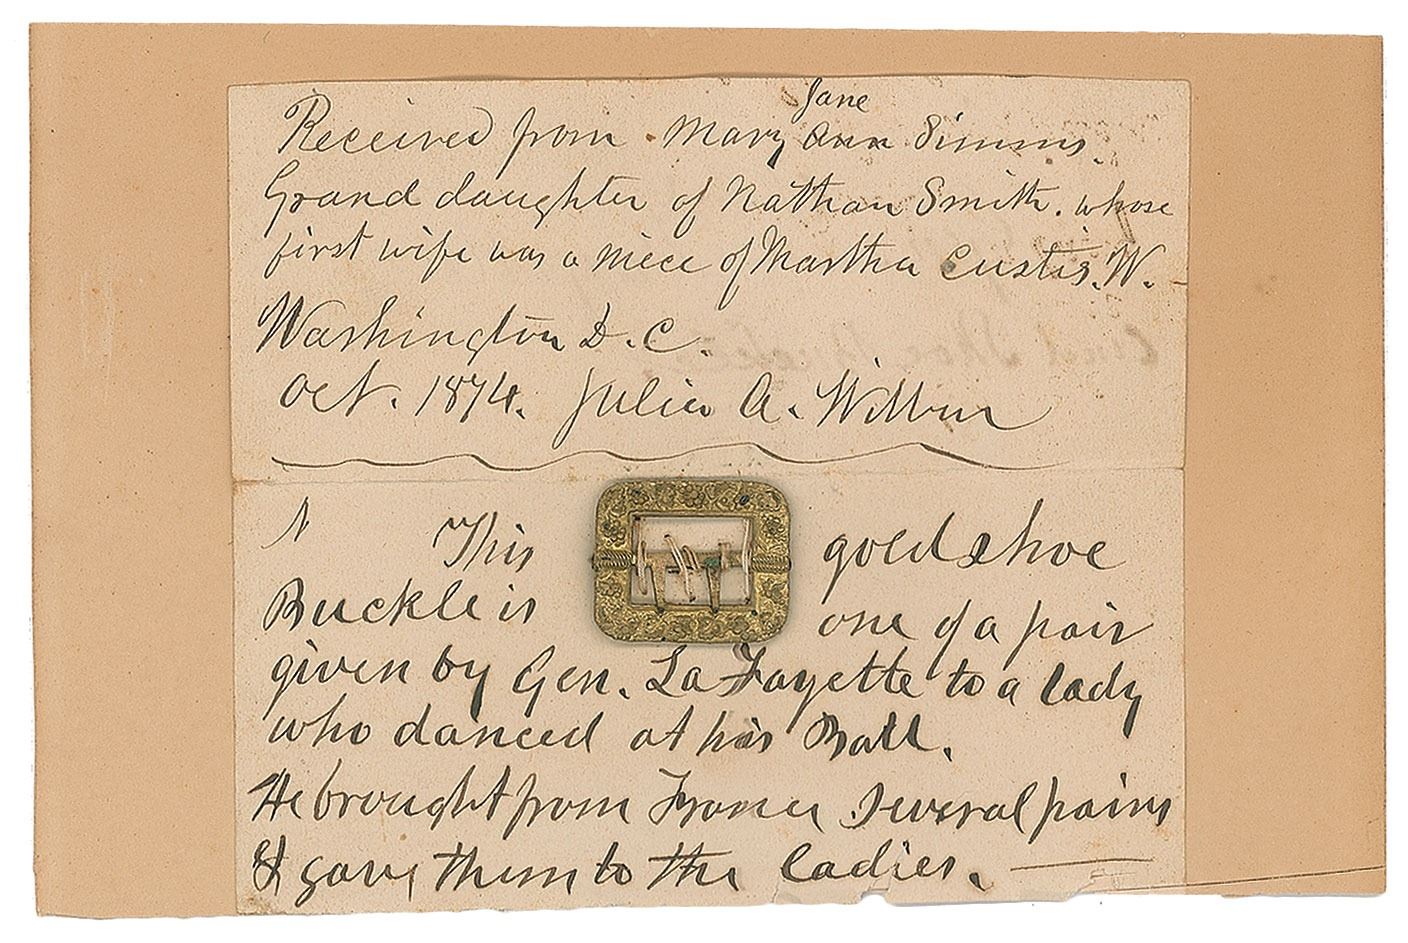 Jane
Received from Mary Ann Simms.
Grand daughter of Nathan Smith. whose
first wife was a niece of Martha Custis. W.
Washington D. C.
Oct. 1874. Julia A. Wilbur
This gold shoe
Buckle is one of a pair
given by Gen. La Fayette to a lady
who danced at his Ball.
He brought from France several pairs
& gave them to the ladies.